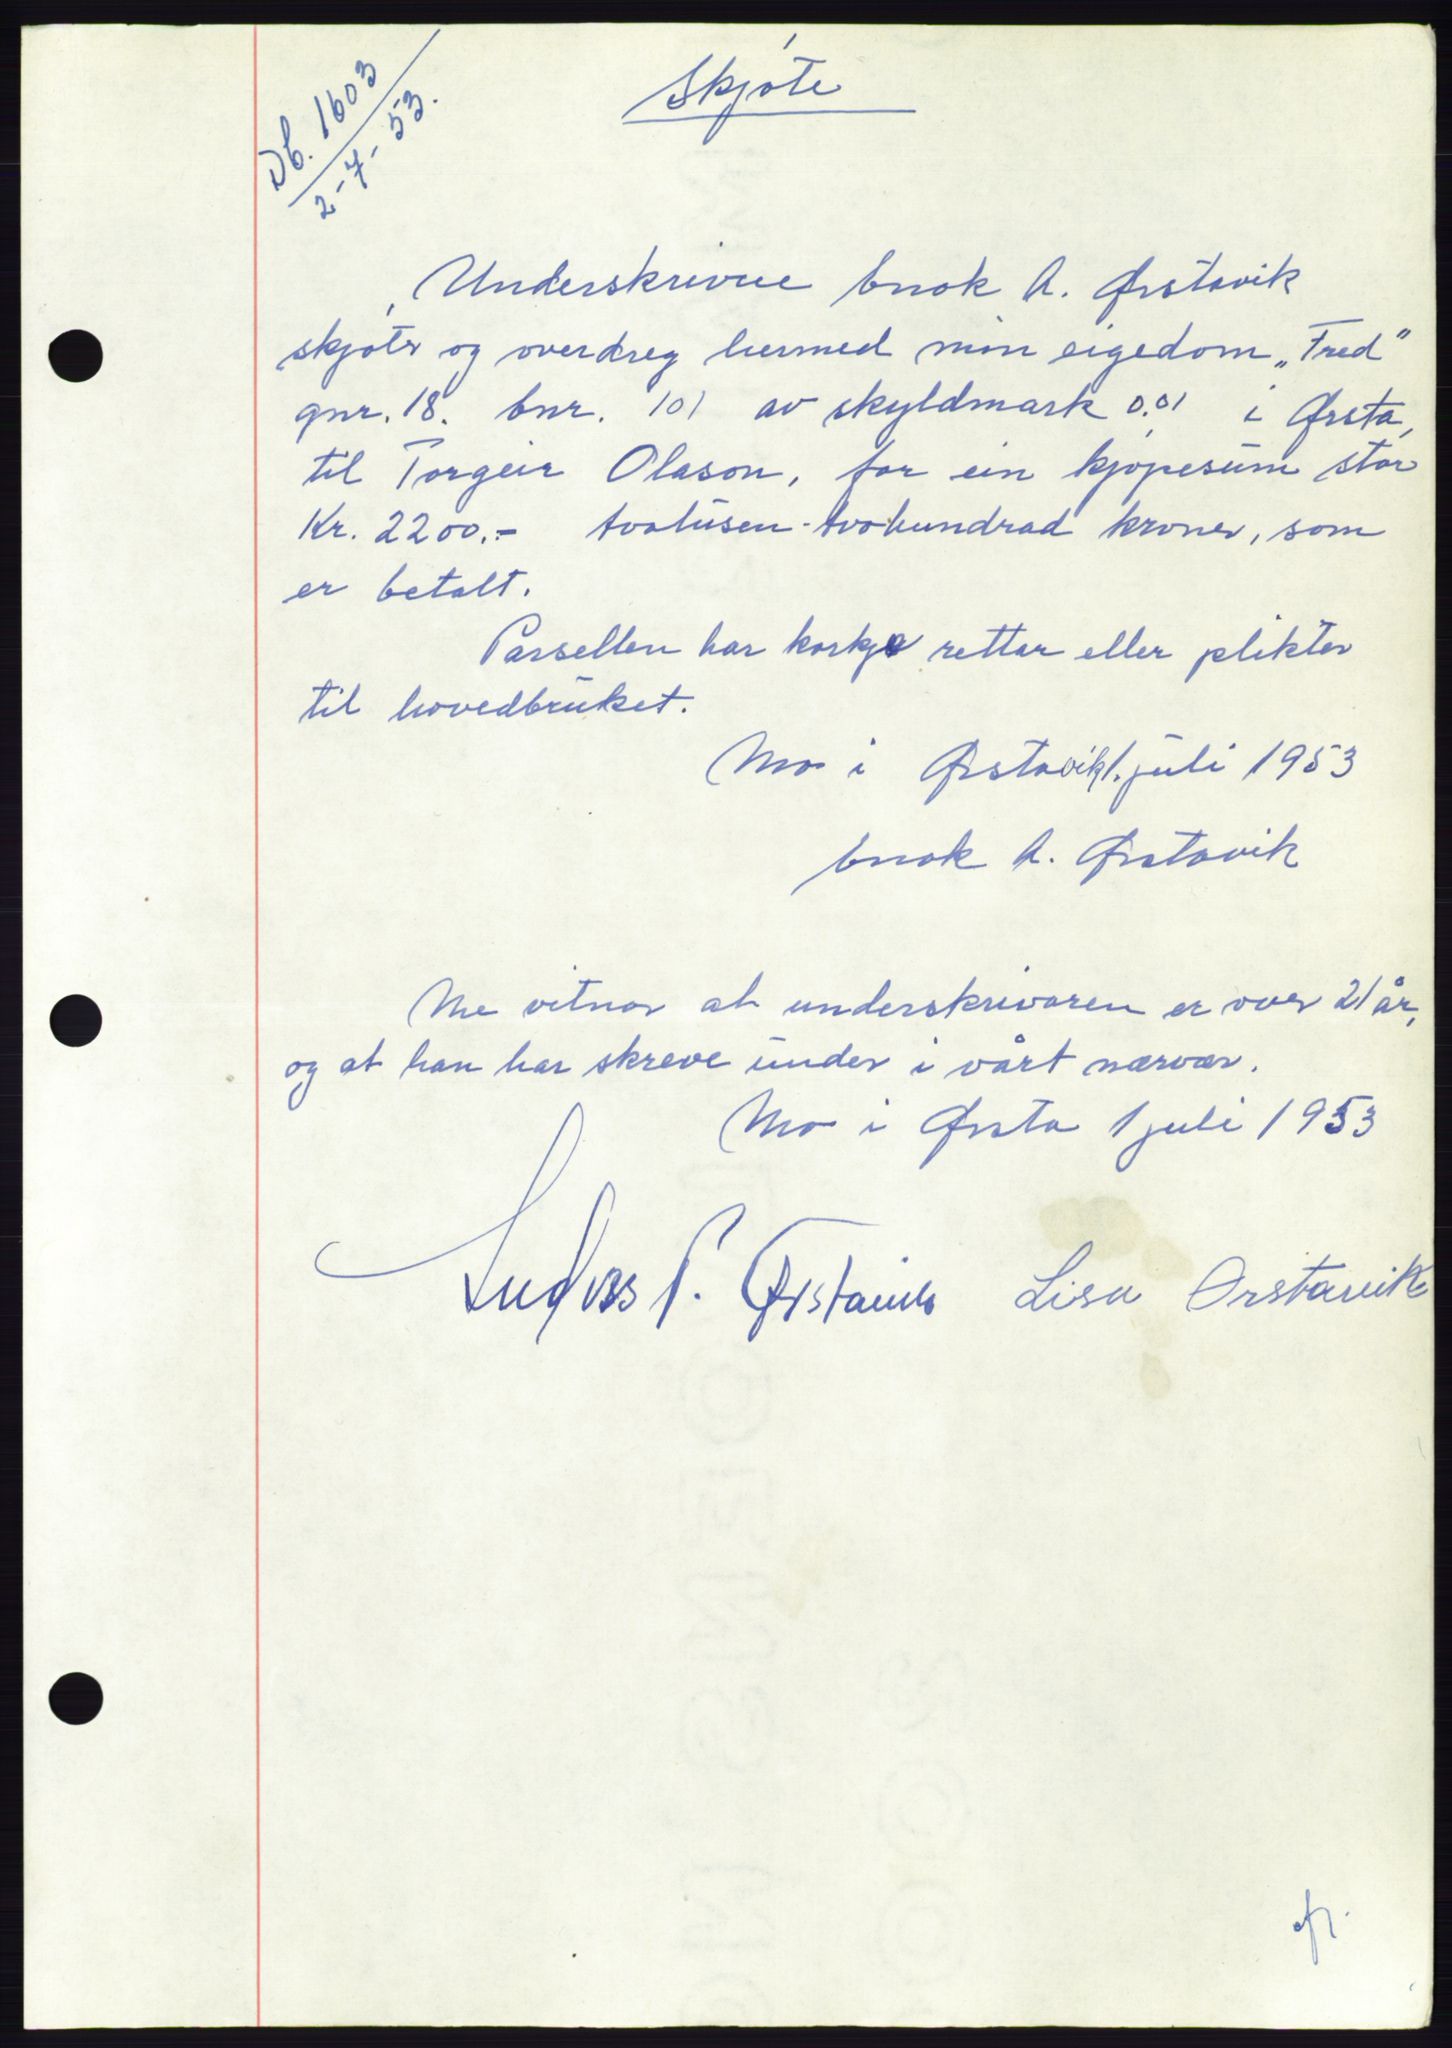 Skjøte
Db. 1603
2-7-53.
Underskrivne Knok A. Ørstavik
skjøter og overdreg hermed min eigedom „Fred"
gnr. 18. bnr. 101 av skyldmark 0.01 i Ørsta,
til Torgeir Olason, for ein kjøpesum stor
Kr. 2200.- tvotusen-tvohundrad kroner, som
er betalt.
Parsellen har korkje rettar eller plikter
til hovedbruket.
Mo i Ørstavik 1. juli 1953
Knok A. Ørstavik
Me vitnar at underskrivaren er over 21 år,
og at han har skreve under i vårt nærvær.
Mo i Ørsta 1 juli 1953
P. Ørstavik Lisa Ørstavik